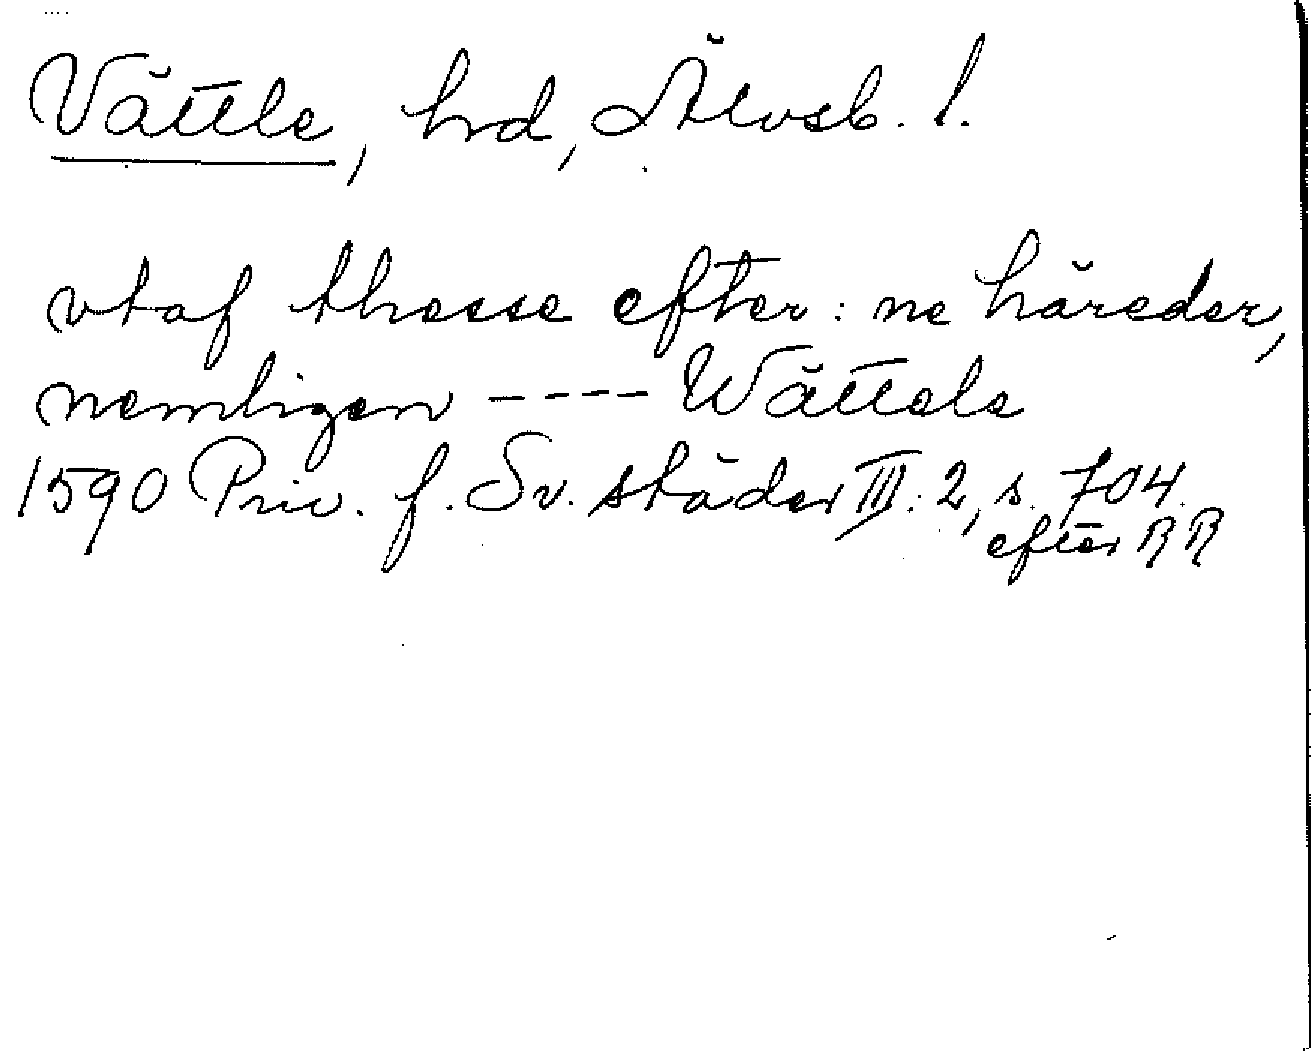 Vättle, hrd, Älvsb. l.
vtaf thesse efter: ne häreder,
nemligen ---- Wättele
1590 Priv. f. Sv. städer III: 2, s. 704.
efter RR